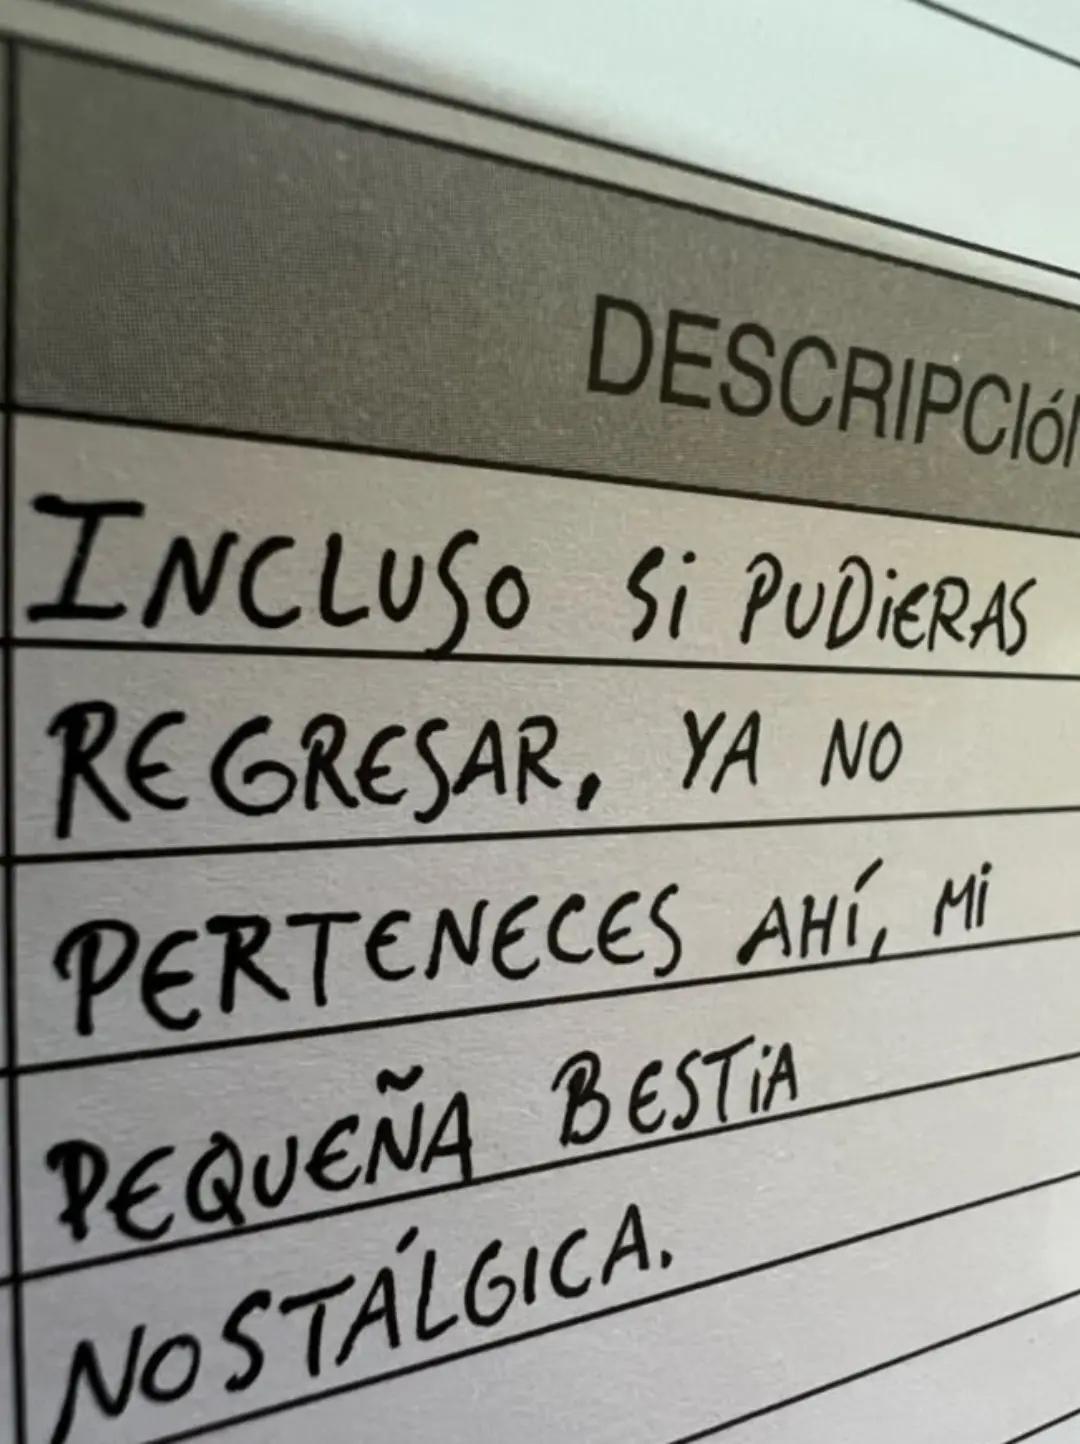 DESCRIPCIÓN
INCLUSO SI PUDIERAS
REGRESAR, YA NO
PERTENECES AHÍ, MI
PEQUEÑA BESTIA
NOSTÁLGICA.